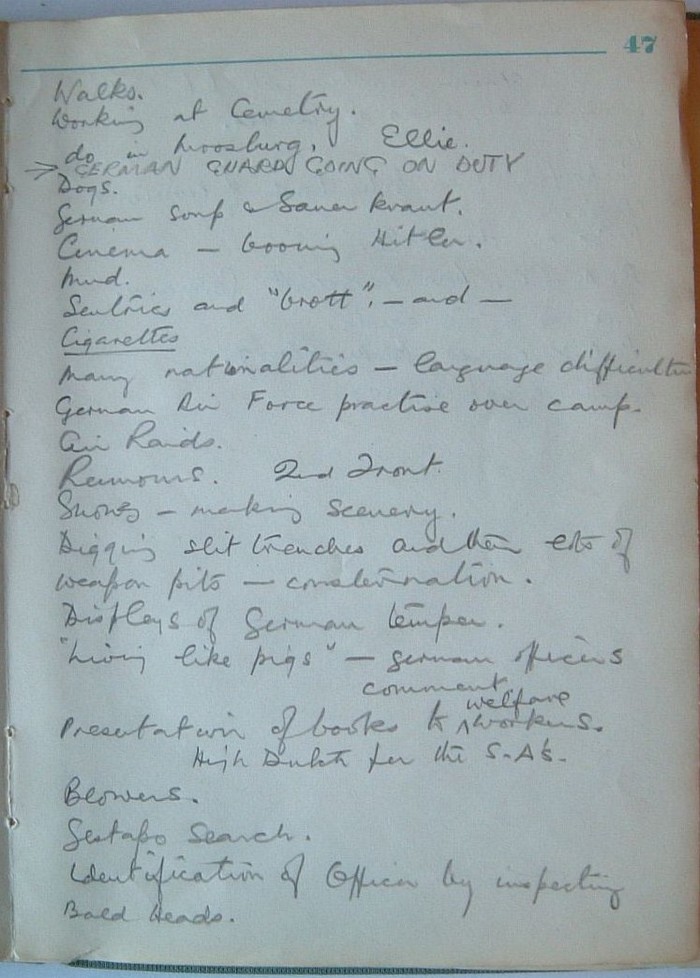 47
Walks.
Working at Cemetry.
do in Moosburg. Ellie.
→ GERMAN GUARD GOING ON DUTY
Dogs.
German soup & Sauer kraut.
Cinema — booing Hitler.
Mud.
Sentries and "brott". — and —
Cigarettes
Many nationalities — language difficulties
German Air Force practise over camp.
Air Raids.
Rumours. 2nd Front.
Shows — making scenery.
Digging slit trenches and then lots of
weapon pits — consternation.
Displays of German temper.
"Living like pigs" — german officers
comment
welfare
Presentation of books to ^ workers.
High Dutch for the S.A's.
Blowers.
Gestapo Search.
Identification of Officer by inspecting
Bald Heads.